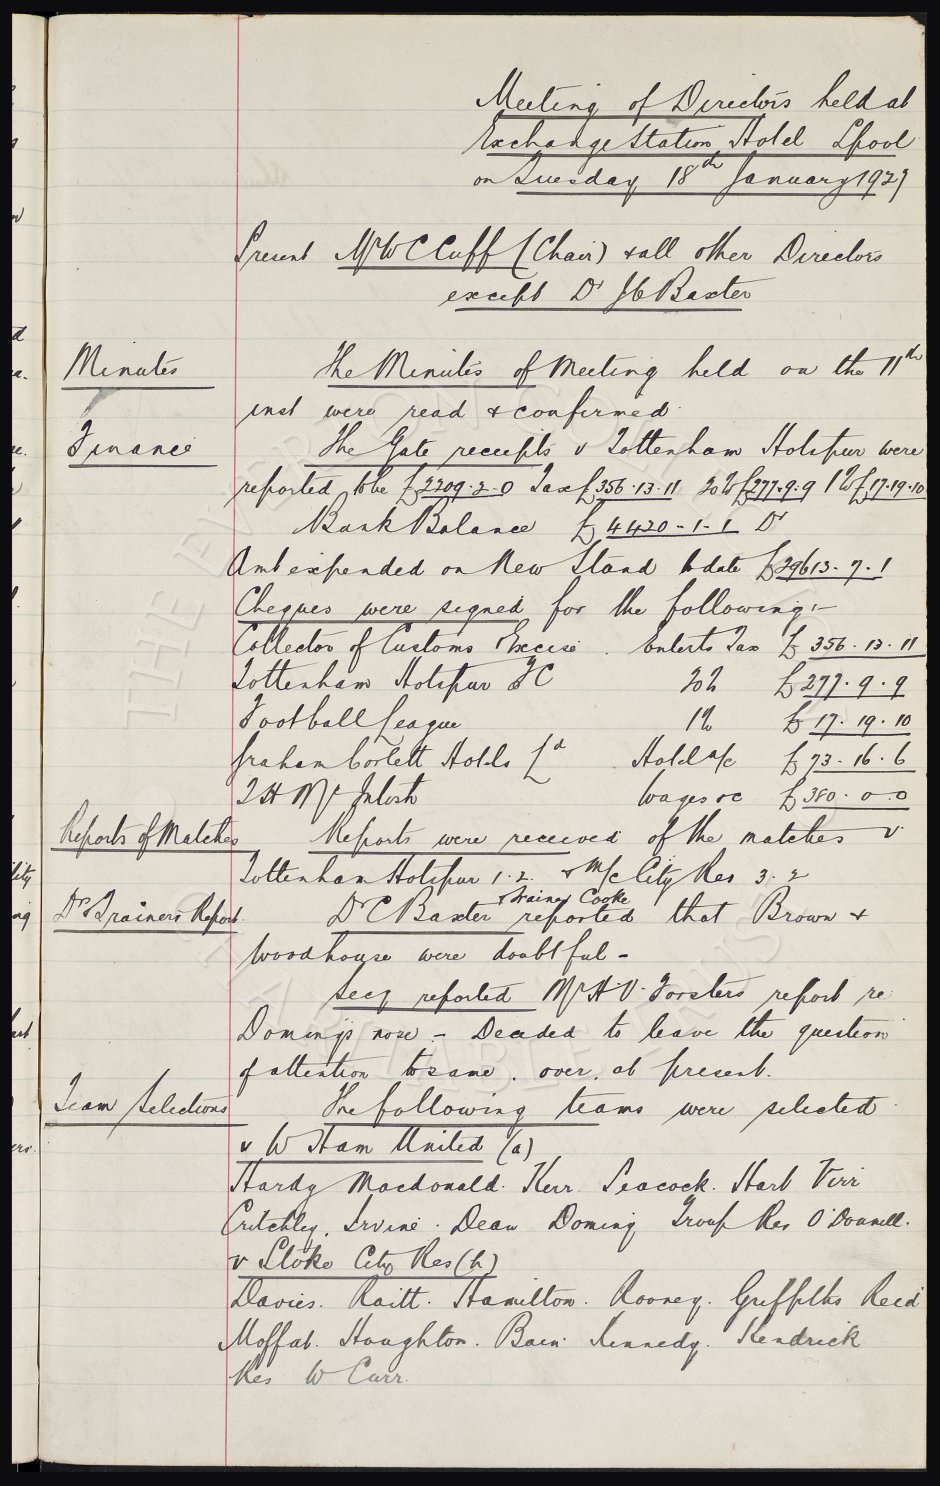 Meeting of Directors held at
Exchange Station Hotel Lpool
on Tuesday 18th January 1927
Present Mr W C Cuff (Chair) & all other Directors
except Dr J C Baxter
Minutes The Minutes of Meeting held on the 11th
inst were read & confirmed.
Finance The Gate receipts v Tottenham Hotspur were
reported to be £2209.2.0 Tax £356.13.11 20% £277.9.9 1% £17.19.10
Bank Balance £4420-1-1 Dr
Amt expended on New Stand to date £29613.7.1
Cheques were signed for the following:-
Collector of Customs & Excise. Enterts Tax £356.13.11
Tottenham Hotspur F C 20% £277.9.9
Football League 1% £17.19.10
Graham Corlett Hotels Ld Hotel a/c £73.16.6
T H McIntosh Wages &c £380.0.0
Reports of Matches Reports were received of the matches v
Tottenham Hotspur 1.2. & M/c City Res 3.2
Dr & Trainers Report. Dr C Baxter & Trainer Cooke reported that Brown &
Woodhouse were doubtful -
Secy reported Mr H V Forsters report re
Domings nose - Decided to leave the question
of attention to same. over. at present.
Team Selections The following teams were selected
v W Ham United (a)
Hardy Macdonald. Kerr. Peacock. Hart Virr
Critchley. Irvine. Dean Doming Troup Res O'Donnell.
v Stoke City Res (h)
Davies. Raitt. Hamilton. Rooney. Griffiths Reid
Moffat. Houghton. Bain. Kennedy. Kendrick
Res W Curr.
THE EVERTON COLLECTION
CHARITABLE TRUST